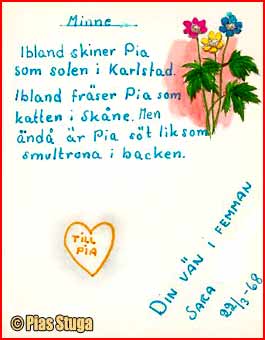 Minne
Ibland skiner Pia
som solen i Karlstad.
Ibland fräser Pia som
katten i Skåne. Men
ändå är Pia söt liksom
smultrona i backen.
TiLL
PiA
DiN VÄN i FEMMAN
SARA
22/3-68
© Pias Stuga